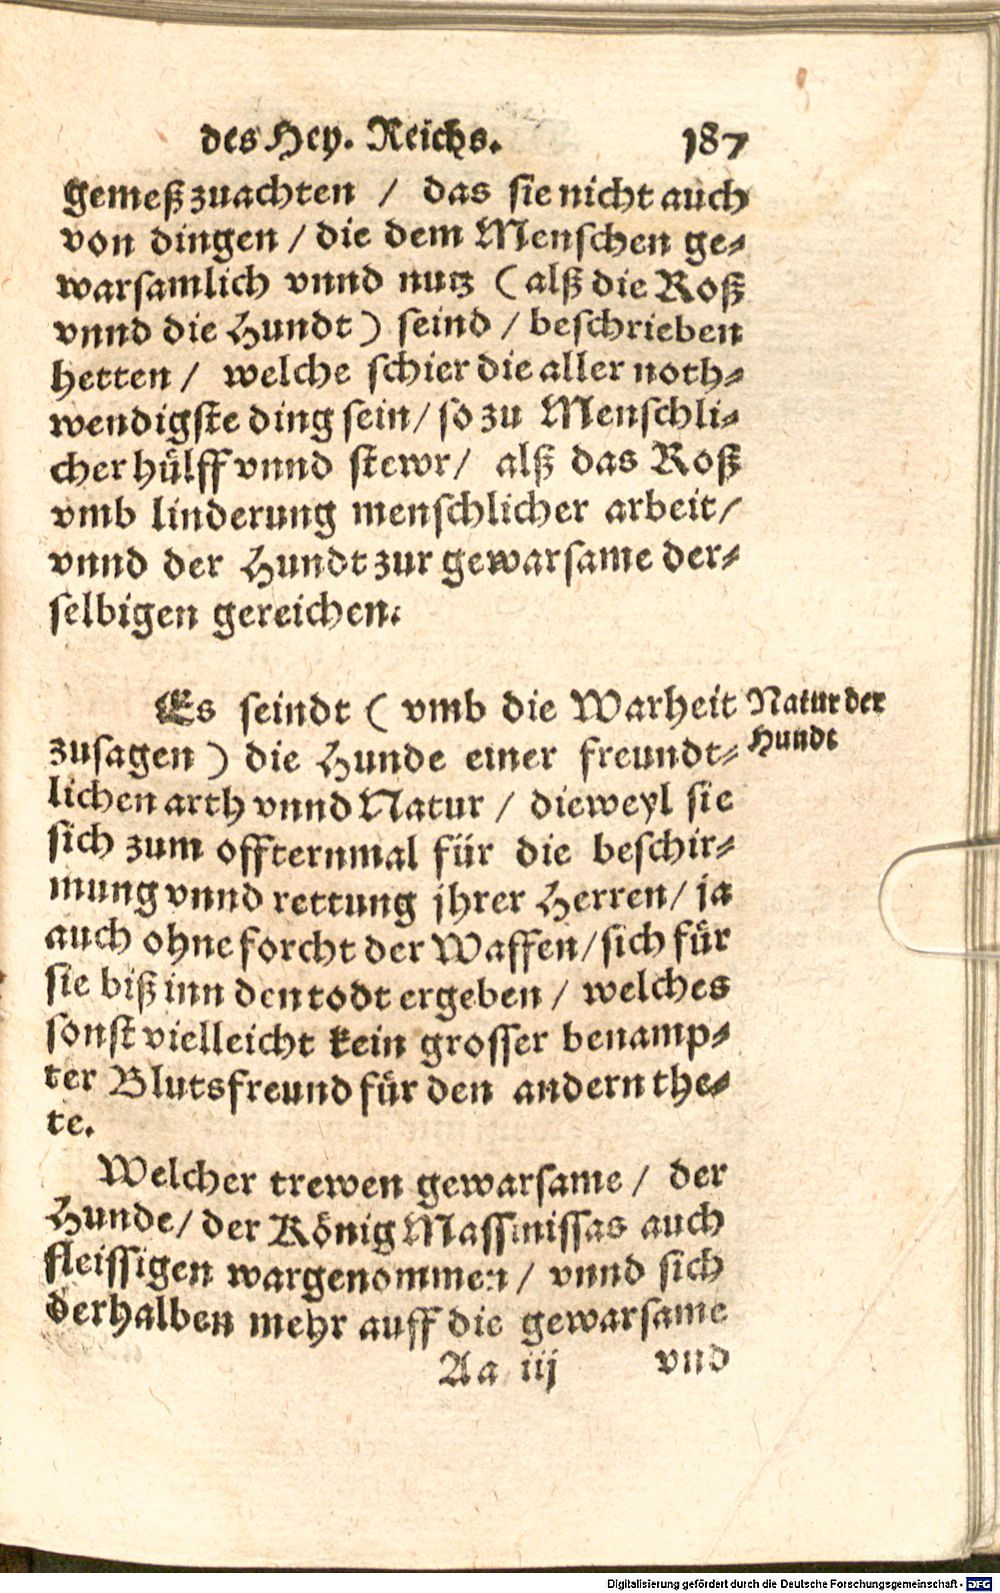 des Hey. Reichs. 187
gemeß zuachten / das sie nicht auch
von dingen / die dem Menschen ge-
warsamlich vnnd nutz ( alß die Roß
vnnd die Hundt ) seind / beschrieben
hetten / welche schier die aller noth-
wendigste ding sein / so zu Menschli-
cher hülff vnnd stewr / alß das Roß
vmb linderung menschlicher arbeit /
vnnd der Hundt zur gewarsame der-
selbigen gereichen.
Es seindt ( vmb die Warheit
Natur der
Hundt
zusagen ) die Hunde einer freundt-
lichen arth vnnd Natur / dieweyl sie
sich zum offternmal für die beschir-
mung vnnd rettung jhrer Herren / ja
auch ohne forcht der Waffen / sich für
sie biß inn den todt ergeben / welches
sonst vielleicht kein grosser benamp-
ter Blutsfreund für den andern the-
te.
Welcher trewen gewarsame / der
Hunde / der König Massinissas auch
fleissigen wargenommen / vnnd sich
derhalben mehr auff die gewarsame
Aa iij vnd
Digitalisierung gefördert durch die Deutsche Forschungsgemeinschaft - DFG